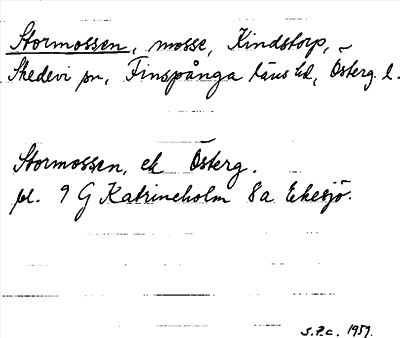 Stormossen, mosse, Kindstorp,
Skedevi sn, Finspånga läns hd, Österg. l.
Stormossen, ek Österg.
bl. 9 G Katrineholm 8a Ekesjö.
S.P.c. 1957.